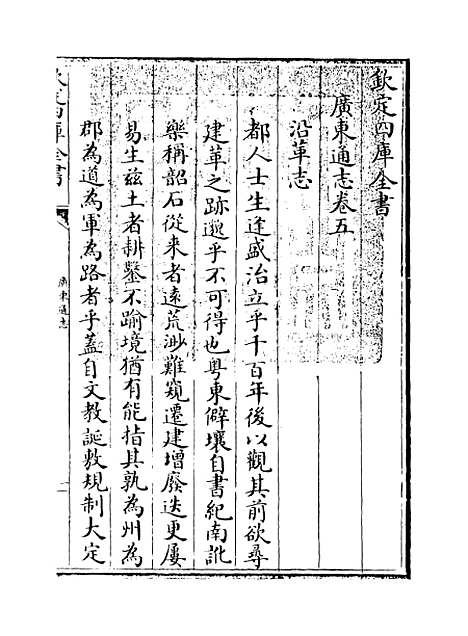 欽定四庫全書
廣東通志卷五
沿革志
都人士生逢盛治立乎千百年後以觀其前欲尋
建革之跡邈乎不可得也粤東僻壤自書紀南訛
樂稱韶石從来者逺荒渺難窺遷建增廢迭更屢
易生兹土者耕鑿不踰境猶有能指其孰為州為
郡為道為軍為路者乎蓋自文教誕敷規制大定
欽定四庫全書
廣東通志